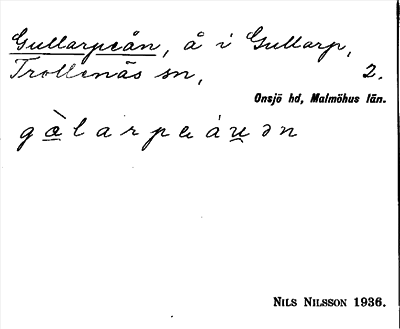 Gullarpeån, å i Gullarp,
Trollenäs sn, 2.
Onsjö hd, Malmöhus län.
NILS NILSSON 1936.